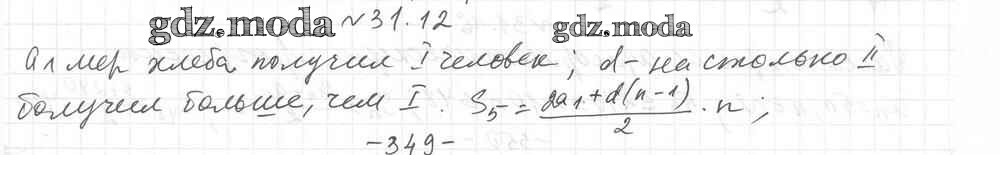 gdz.moda №31.12 gdz.moda
a₁ мер хлеба получил I человек; d - на столько II
получил больше, чем I. S₅ = (2a₁+d(n-1))/2 · n;
-349-